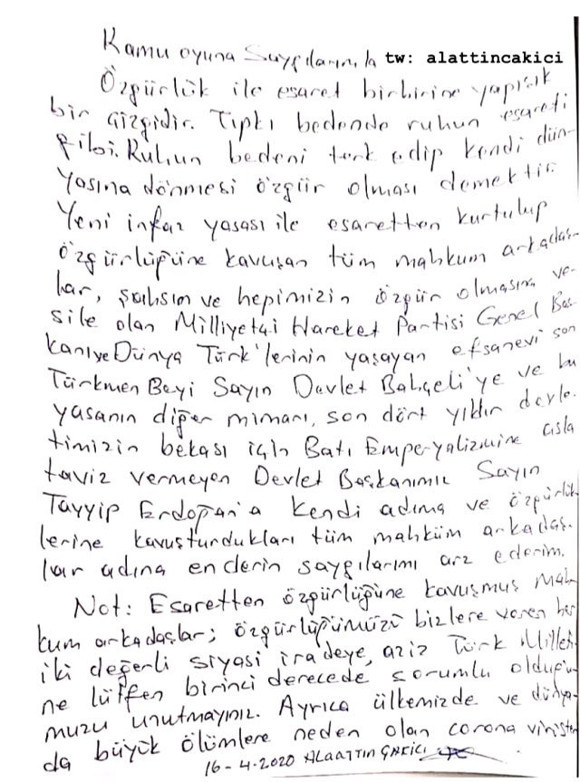 Kamu oyuna Saygılarımla tw: alattincakici
Özgürlük ile esaret birbirine yapışık
bir çizgidir. Tıpkı bedende ruhun esareti
gibi. Ruhun bedeni terk edip kendi dün-
yasına dönmesi özgür olması demektir.
Yeni infaz yasası ile esaretten kurtulup
özgürlüğüne kavuşan tüm mahkum arkadaş-
lar, şahsım ve hepimizin özgür olmasına ve-
sile olan Milliyetçi Hareket Partisi Genel Baş-
kanı ve Dünya Türk'lerinin yaşayan efsanevi son
Türkmen Beyi Sayın Devlet Bahçeli'ye ve bu
yasanın diğer mimarı, son dört yıldır devle-
timizin bekası için Batı Emperyalizmine asla
taviz vermeyen Devlet Başkanımız Sayın
Tayyip Erdoğan'a kendi adıma ve özgürlük
lerine kavuşturdukları tüm mahküm arkadaş-
lar adına en derin saygılarımı arz ederim.
Not: Esaretten özgürlüğüne kavuşmuş mah
kum arkadaşlar; özgürlüğümüzü bizlere veren her
iki değerli siyasi iradeye, aziz Türk Milleti-
ne lütfen birinci derecede sorumlu olduğu
muzu unutmayınız. Ayrıca ülkemizde ve dünya-
da büyük ölümlere neden olan corona
16-4-2020 ALAATTİN ÇAKICI